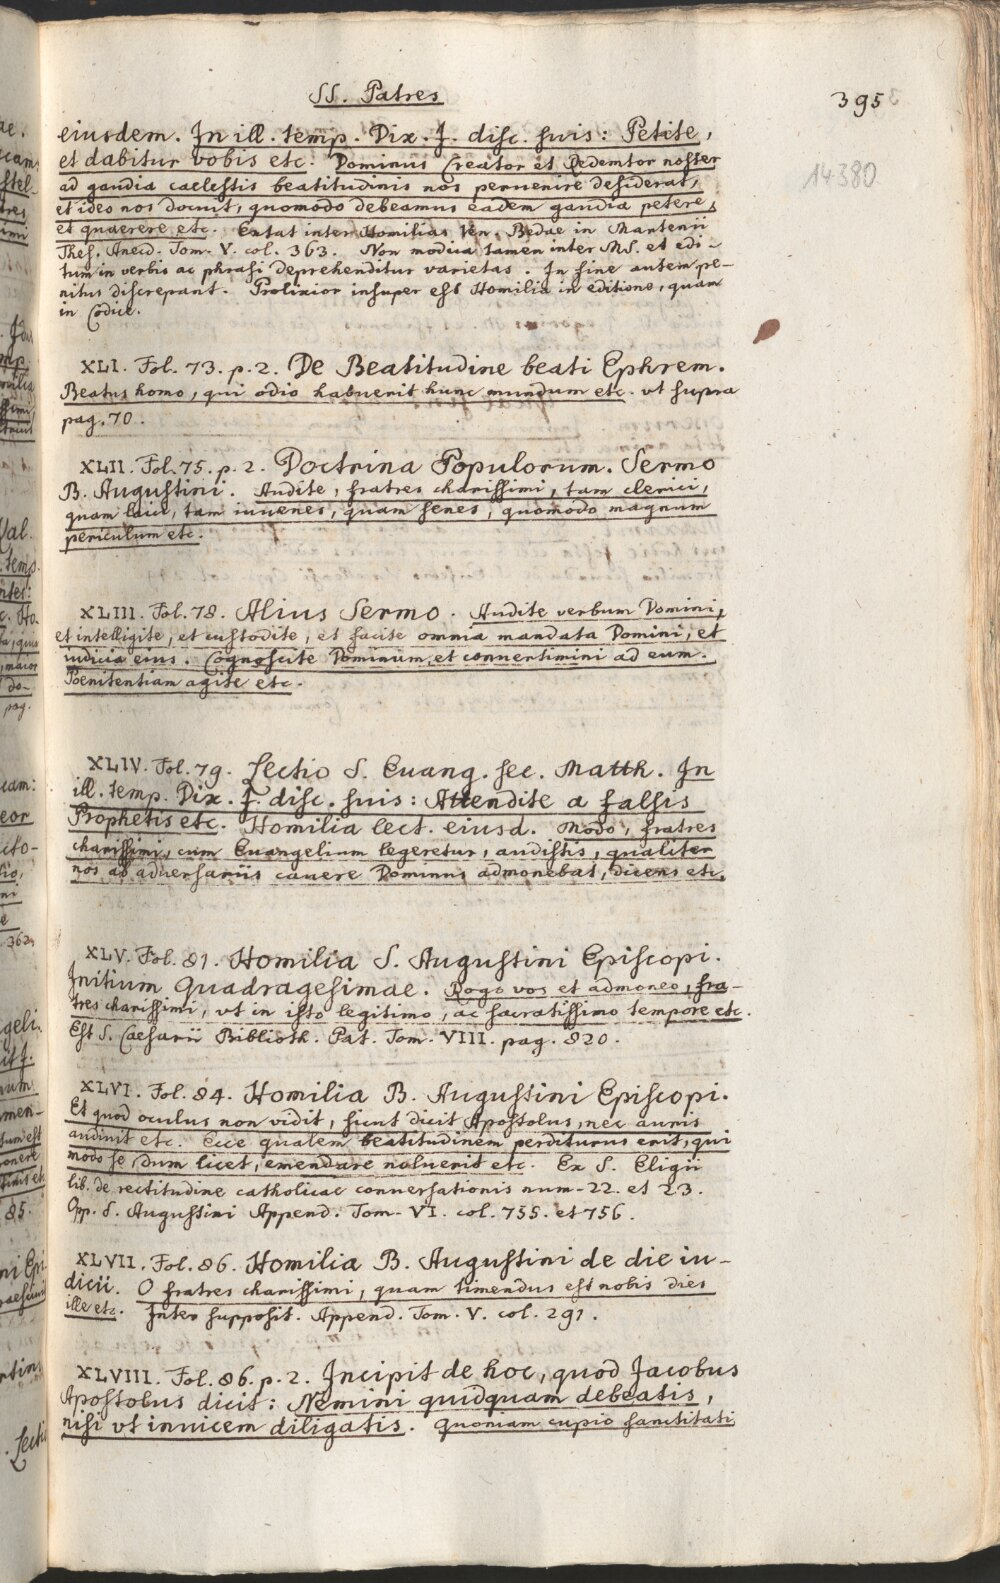 SS. Patres
395
14380
eiusdem. In ill. temp. Dix. J. disc. suis: Petite,
et dabitur vobis etc. Dominus Creator et Redemtor noster
ad gaudia caelestis beatitudinis nos peruenire desiderat,
et ideo nos docuit, quomodo debeamus eadem gaudia petere,
et quaerere etc. Extat inter Homilias Ven. Bedae in Martenii
Thes. Anecd. Tom. V. col. 363. Non modica tamen inter MS. et edi-
tum in verbis ac phrasi deprehenditur varietas. In fine autem pe-
nitus discrepant. Prolixior insuper est Homilia in editione, quam
in Codice.
XLI. Fol. 73. p. 2. De Beatitudine beati Ephrem.
Beatus homo, qui odio habuerit hunc mundum etc. vt supra
pag. 70.
XLII. Fol. 75. p. 2. Doctrina Populorum. Sermo
B. Augustini. Audite, fratres charissimi, tam clerici,
quam laici, tam iuuenes, quam senes, quomodo magnum
periculum etc.
XLIII. Fol. 78. Alius Sermo. Audite verbum Domini,
et intelligite, et custodite, et facite omnia mandata Domini, et
iudicia eius. Cognoscite Dominum, et conuertimini ad eum.
Poenitentiam agite etc.
XLIV. Fol. 79. Lectio S. Euang. sec. Matth. In
ill. temp. Dix. J. disc. suis: Attendite a falsis
Prophetis etc. Homilia lect. eiusd. Modo, fratres
charissimi, cum Euangelium legeretur, audistis, qualiter
nos ab aduersariis cauere Dominus admonebat, dicens etc.
XLV. Fol. 81. Homilia S. Augustini Episcopi.
Initium Quadragesimae. Rogo vos et admoneo, fra-
tres charissimi, vt in isto legitimo, ac sacratissimo tempore etc.
Est S. Caesarii Biblioth. Pat. Tom. VIII. pag. 820.
XLVI. Fol. 84. Homilia B. Augustini Episcopi.
Et quod oculus non vidit, sicut dicit Apostolus, nec auris
audiuit etc. Ecce qualem beatitudinem perditurus erit, qui
modo se, dum licet, emendare noluerit etc. Ex S. Eligii
lib. de rectitudine catholicae conuersationis num. 22. et 23.
Opp. S. Augustini Append. Tom. VI. col. 755. et 756.
XLVII. Fol. 86. Homilia B. Augustini de die iu-
dicii. O fratres charissimi, quam timendus est nobis dies
ille etc. Inter supposit. Append. Tom. V. col. 291.
XLVIII. Fol. 86. p. 2. Incipit de hoc, quod Jacobus
Apostolus dicit: Nemini quidquam debeatis,
nisi vt inuicem diligatis. Quoniam cupio sanctitati